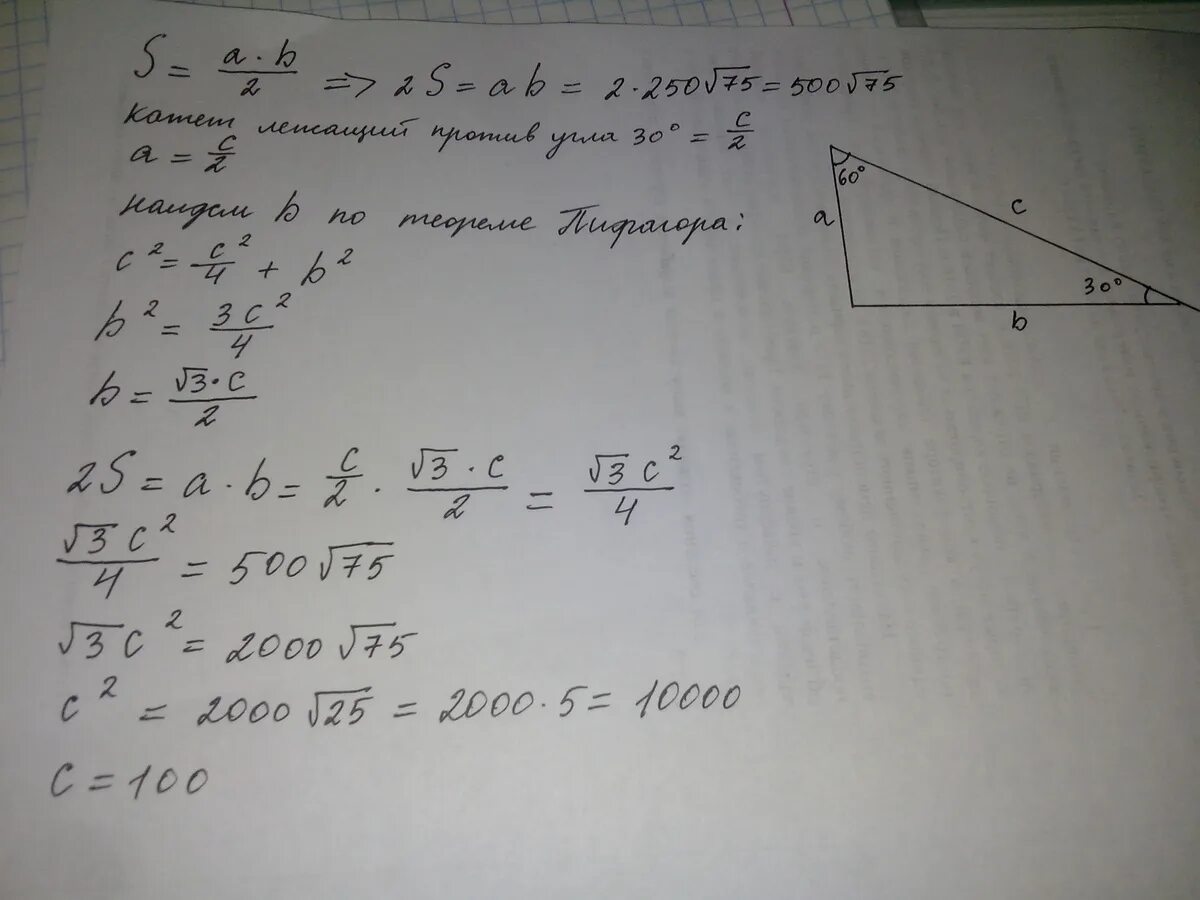 S = a·b/2 => 2S = ab = 2·250√75 = 500√75
катет лежащий против угла 30° = c/2
a = c/2
найдем b по теореме Пифагора:
c² = c²/4 + b²
b² = 3c²/4
b = √3·c/2
2S = a·b = c/2 · √3·c/2 = √3c²/4
√3c²/4 = 500√75
√3c² = 2000√75
c² = 2000√25 = 2000·5 = 10000
c = 100
60°
a
c
30°
b